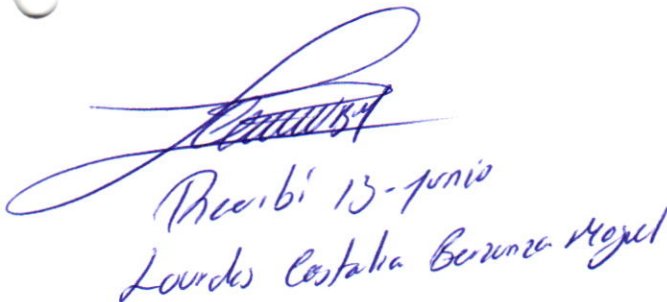 Recibí 13-junio
Lourdes Castalia Berzunza Moguel